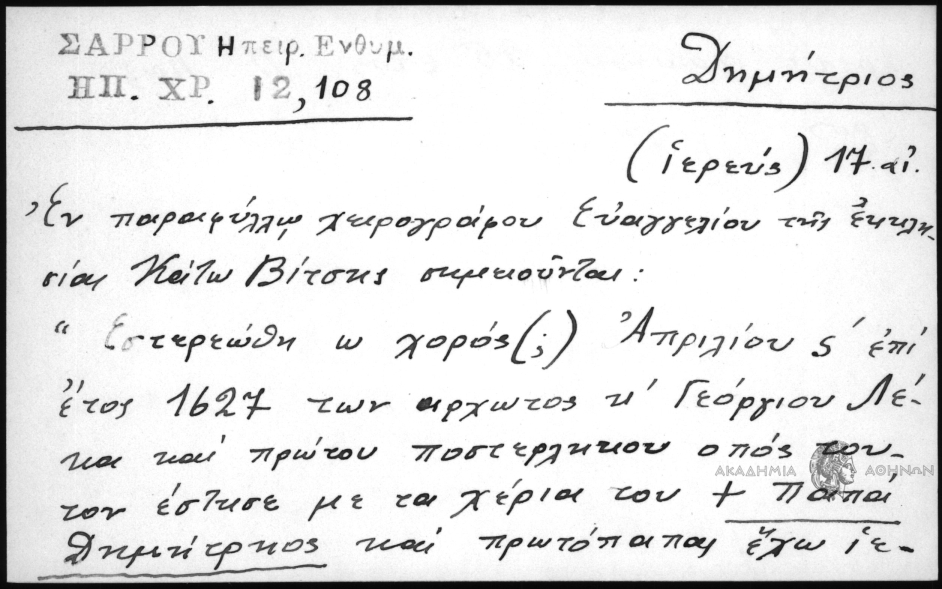 ΣΑΡΡΟΥ Ηπειρ. Ενθυμ.
ΗΠ. ΧΡ. 12, 108
Δημήτριος
(ἱερεύς) 17. αἰ.
Ἐν παραφύλλῳ χειρογράφου Εὐαγγελίου τῆς ἐκκλη-
σίας Κάτω Βίτσης σημειοῦνται:
“ Εστερεώθη ω χορός(;) Ἀπριλίου ς΄ ἐπί
ἔτος 1627 των αρχωτος κ΄ Γεόργιου Λέ-
κα καί πρώτου ποστερληκου οπός του-
τον έστησε με τα χέρια του + Παπά
Δημήτρηος καί πρωτόπαπας ἔχω ἱε-
ΑΚΑΔΗΜΙΑ ΑΘΗΝΩΝ